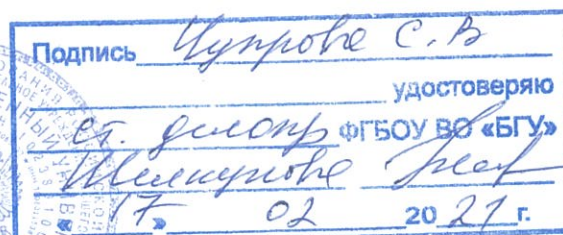 Подпись Чупрова С.В
удостоверяю
ст. делопр ФГБОУ ВО «БГУ»
Шелкунова
«17» 02 2021 г.